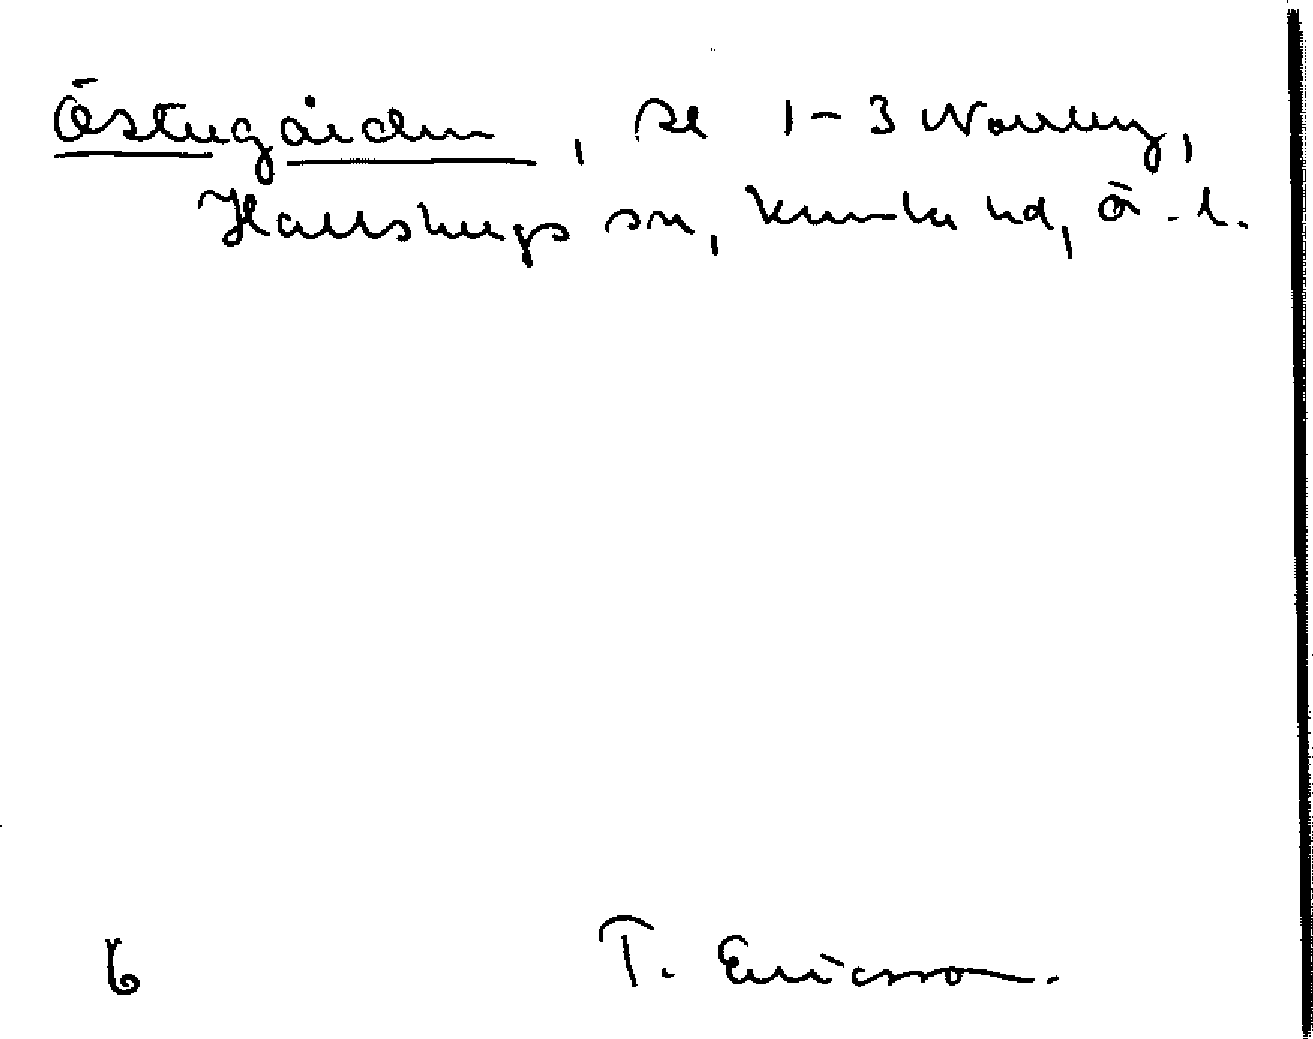 Östergården, se 1-3 Norrby,
Hallsbergs sn, Kumla hd, Ö.l.
6 T. Ericsson.